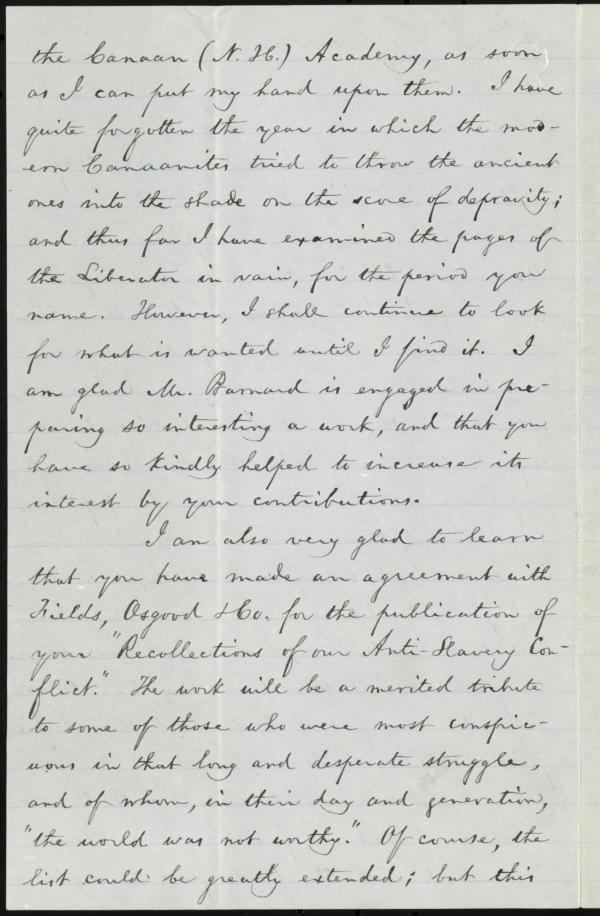 the Canaan (N. H.) Academy, as soon
as I can put my hand upon them. I have
quite forgotten the year in which the mod-
ern Canaanites tried to throw the ancient
ones into the shade on the score of depravity;
and thus far I have examined the pages of
the Liberator in vain, for the period you
name. However, I shall continue to look
for what is wanted until I find it. I
am glad Mr. Barnard is engaged in pre-
paring so interesting a work, and that you
have so kindly helped to increase its
interest by your contributions.
I am also very glad to learn
that you have made an agreement with
Fields, Osgood & Co. for the publication of
your "Recollections of our Anti-Slavery Con-
flict." The work will be a merited tribute
to some of those who were most conspic-
uous in that long and desperate struggle,
and of whom, in their day and generation,
"the world was not worthy." Of course, the
list could be greatly extended; but this